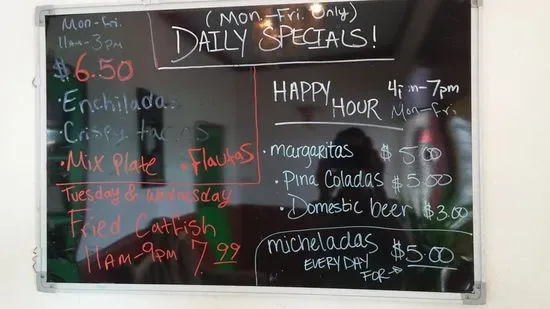 (Mon.-Fri. Only)
DAILY SPECIALS!
Mon-Fri.
11AM-3PM
$6.50
•Enchiladas
Crispy tacos
•Mix Plate •Flautas
Tuesday & Wednesday
Fried Catfish
11AM-9PM 7.99
HAPPY HOUR
4pm-7pm
Mon-Fri
•margaritas $5.00
•Pina Coladas $5.00
•Domestic beer $3.00
micheladas $5.00
EVERYDAY
FOR→